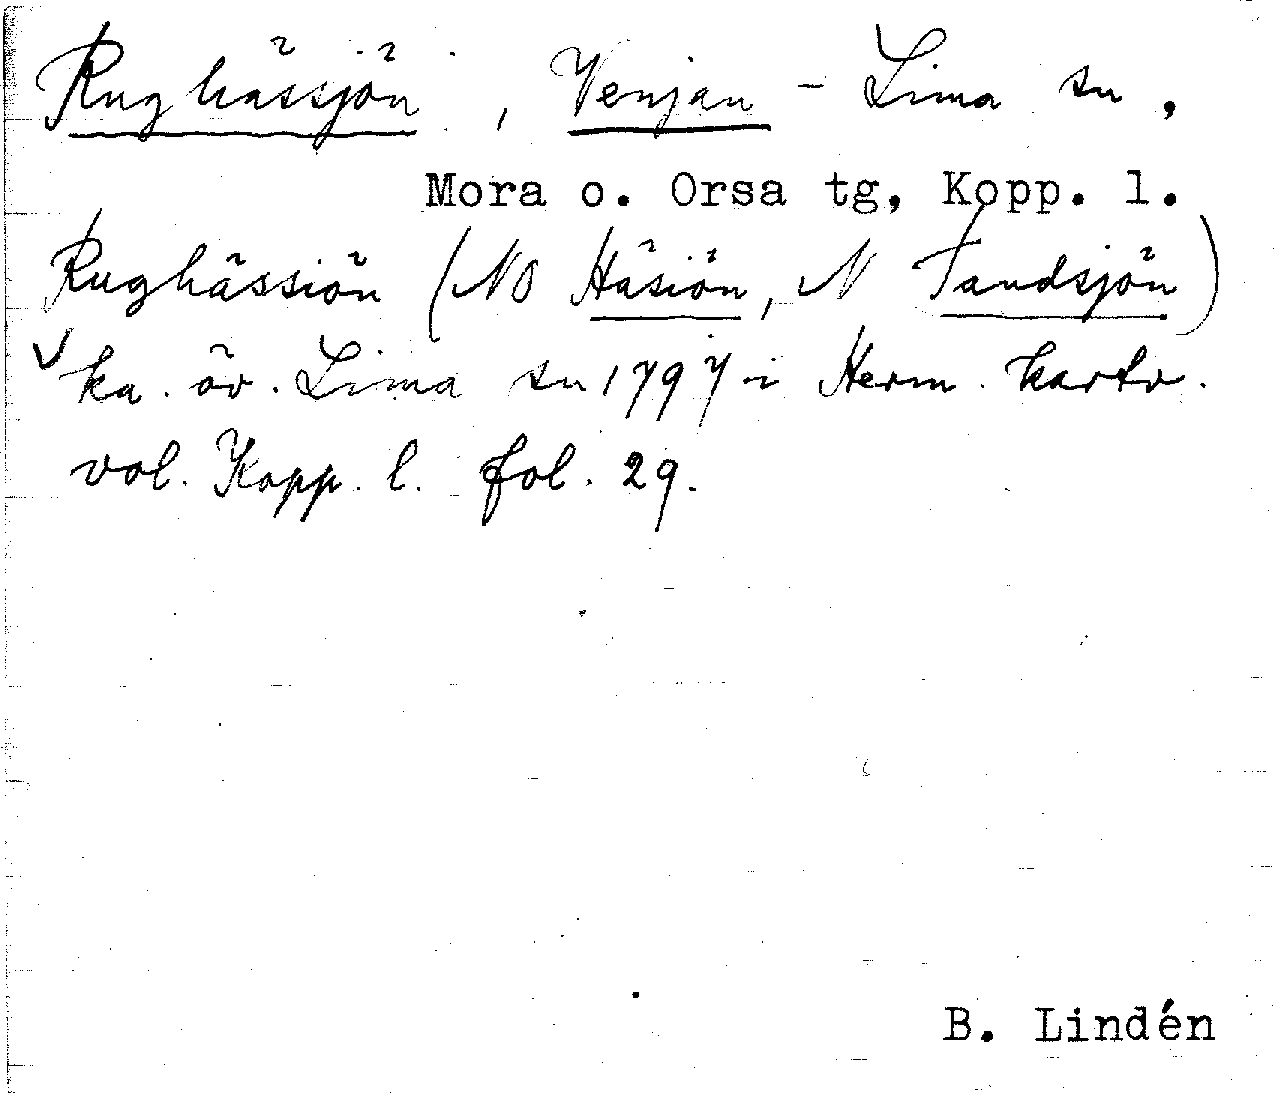 Rughässjön, Venjan - Lima sn,
Mora o. Orsa tg, Kopp. l.
Rughässiön (NO Häsiön, N Tandsjön)
ka. öv. Lima sn 1797 i Herm. kartv.
vol. Kopp. l. fol. 29.
B. Lindén